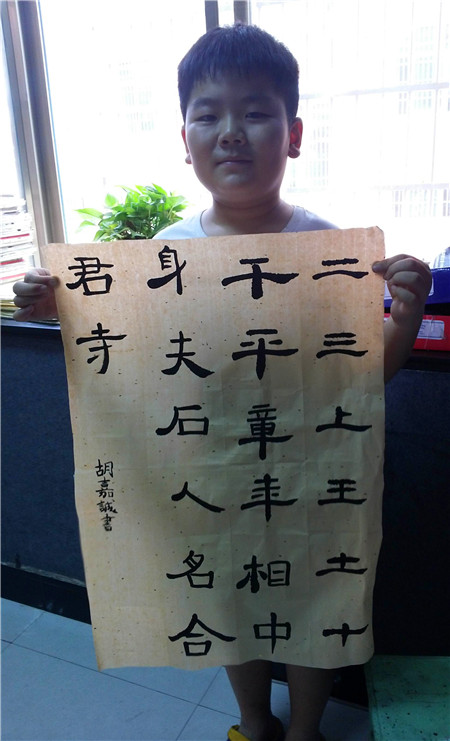 二三上王土十
干平章年相中
身夫石人名合
君寺
胡嘉誠書